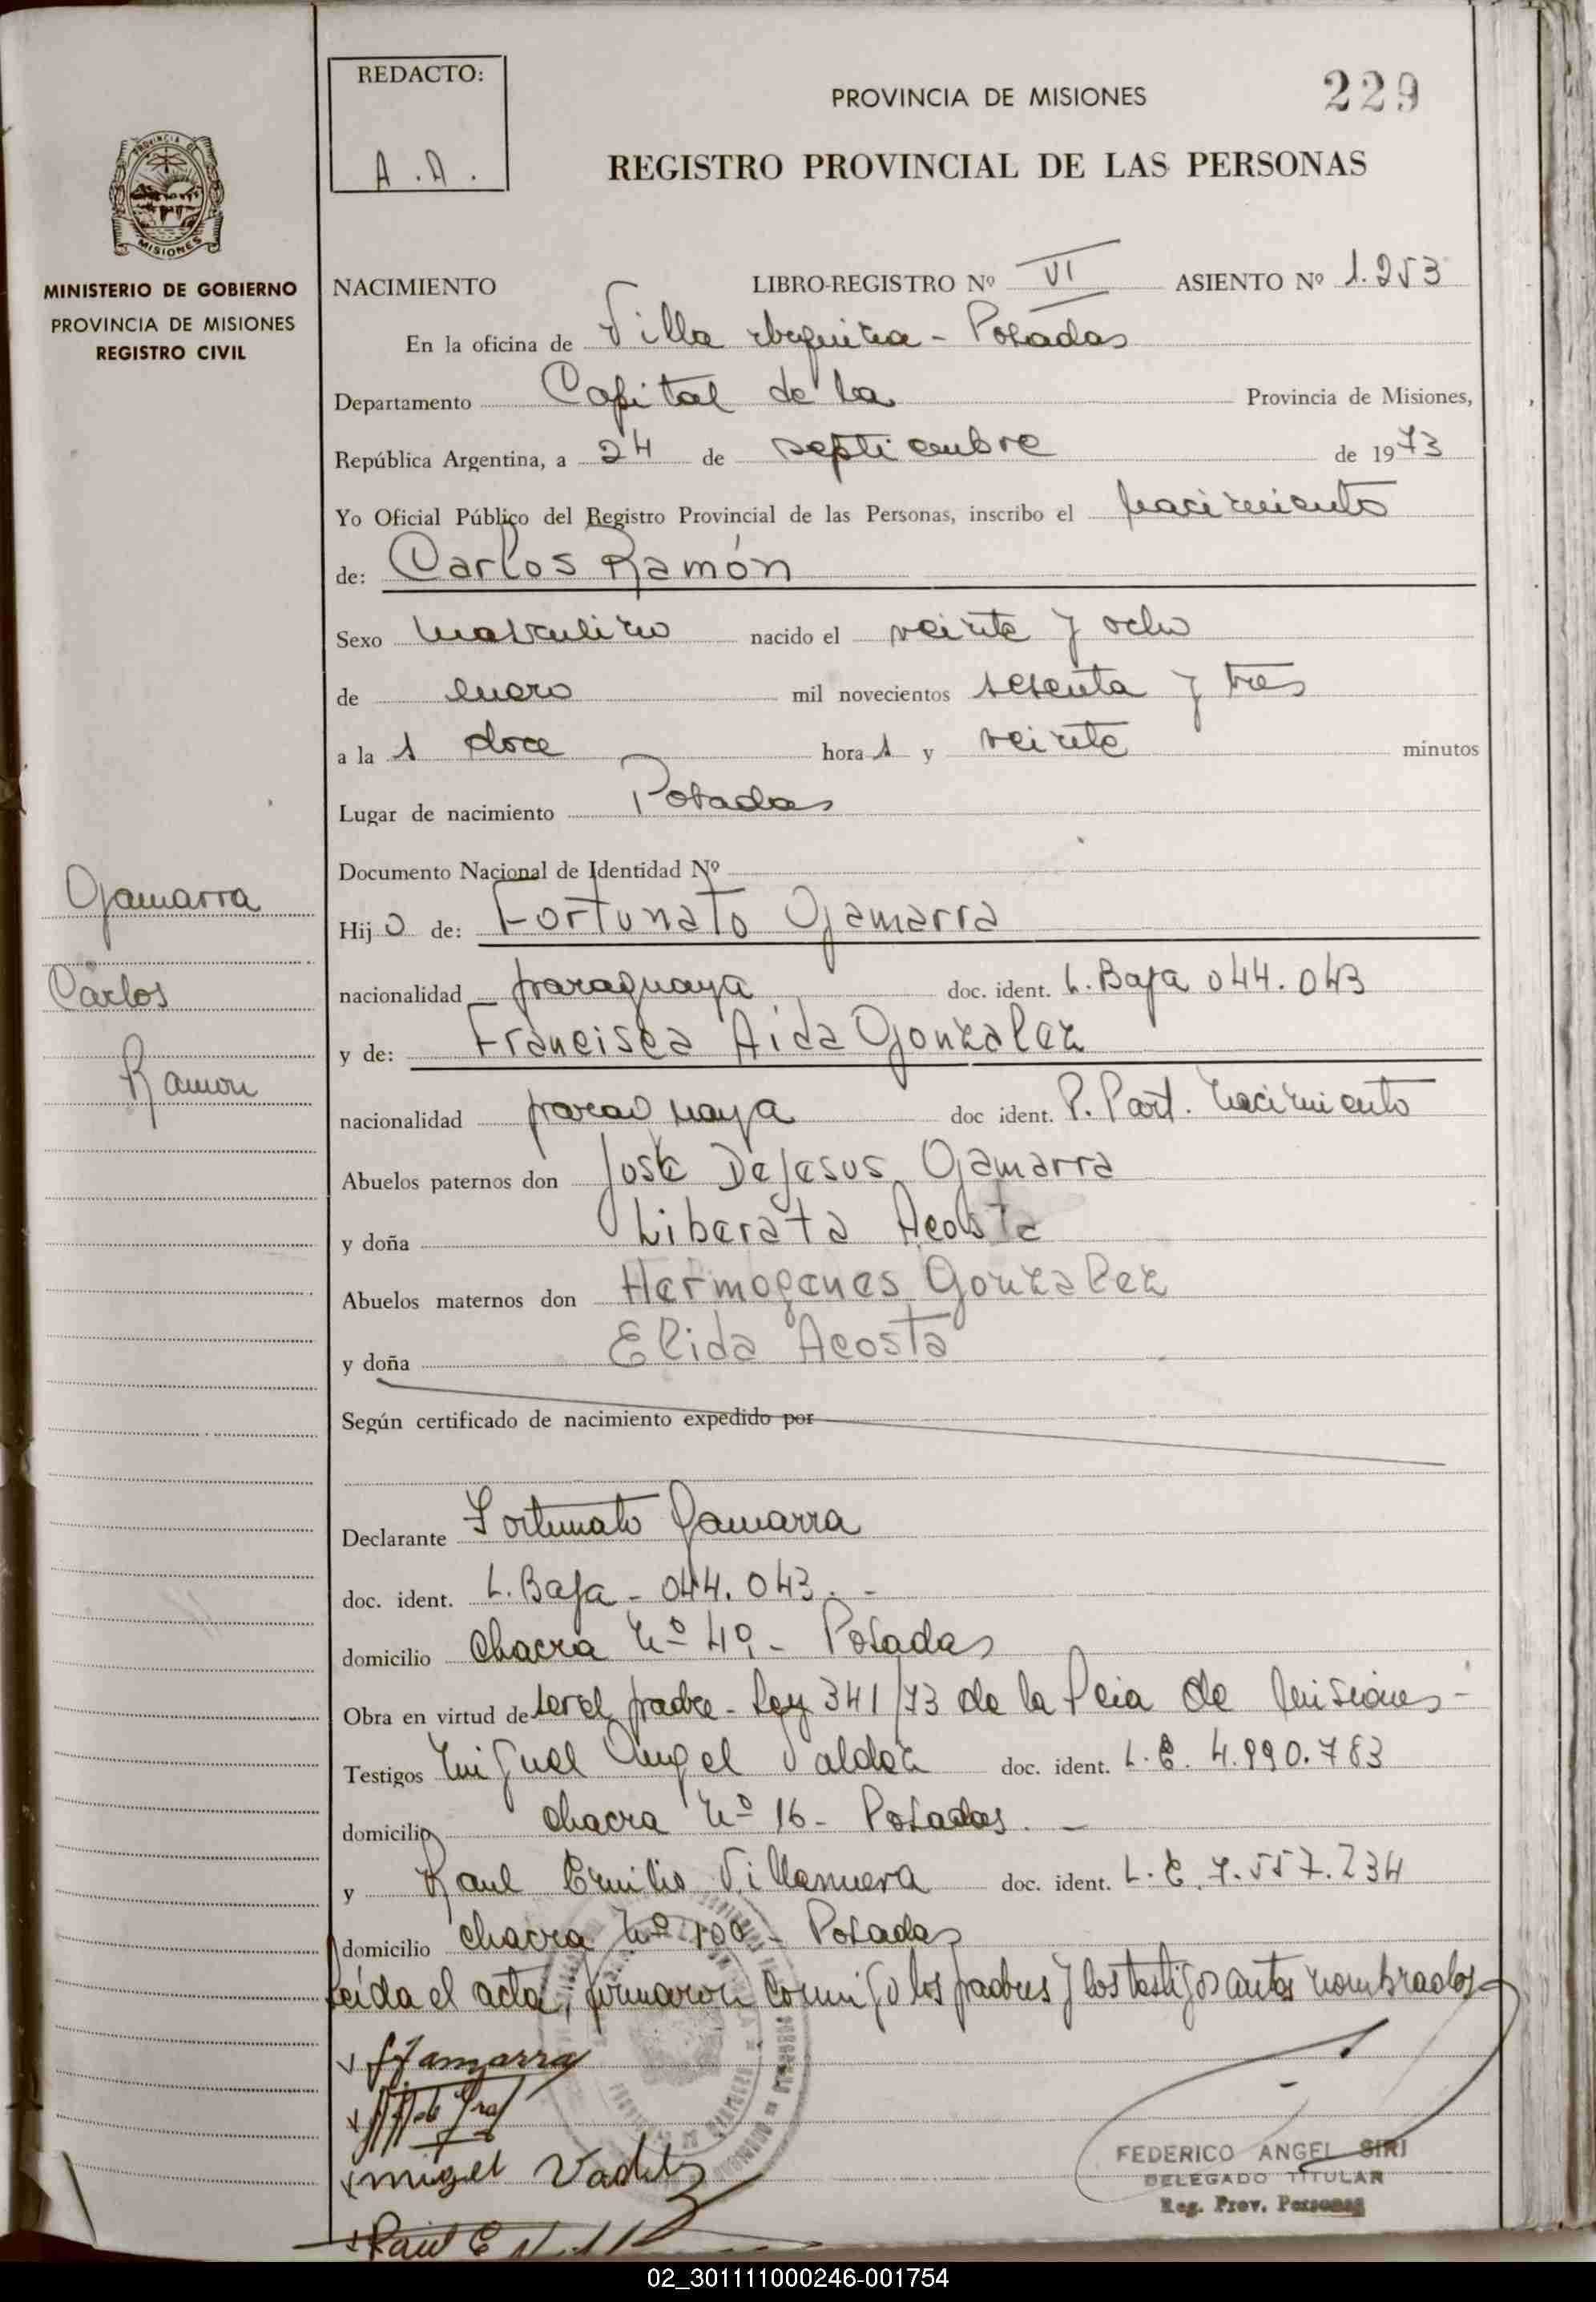 REDACTO:
A.A.
PROVINCIA DE MISIONES
229
REGISTRO PROVINCIAL DE LAS PERSONAS
MISIONES
MINISTERIO DE GOBIERNO
PROVINCIA DE MISIONES
REGISTRO CIVIL
NACIMIENTO LIBRO-REGISTRO Nº VI ASIENTO Nº 1.253
En la oficina de Villa Urquiza - Posadas
Departamento Capital de la Provincia de Misiones,
República Argentina, a 24 de septiembre de 1973
Yo Oficial Público del Registro Provincial de las Personas, inscribo el nacimiento
de: Carlos Ramón
Sexo masculino nacido el veinte y ocho
de enero mil novecientos setenta y tres
a la s doce hora s y veinte minutos
Lugar de nacimiento Posadas
Documento Nacional de Identidad Nº
Gamarra
Carlos
Ramon
Hij o de: Fortunato Gamarra
nacionalidad paraguaya doc. ident. L. Baja 044.043
y de: Francisca Aida Gonzalez
nacionalidad paraguaya doc ident. P. Part. nacimiento
Abuelos paternos don José DeJesus Gamarra
y doña Liberata Acosta
Abuelos maternos don Hermogenes Gonzalez
y doña Elida Acosta
Según certificado de nacimiento expedido por
Declarante Fortunato Gamarra
doc. ident. L. Baja - 044.043. -
domicilio chacra Nº 49 - Posadas
Obra en virtud de ser el padre - Ley 341/73 de la Pcia de Misiones -
Testigos Miguel Angel Valdez doc. ident. L.E. 4.990.783
domicilio chacra Nº 16 - Posadas. -
y Raul Emilio Villanueva doc. ident. L.E. 7.557.234
domicilio chacra Nº 100 - Posadas
Leida el acta, firmaron conmigo los padres y los testigos antes nombrados
Gamarra
FEDERICO ANGEL SIRI
DELEGADO TITULAR
Reg. Prov. Personas
02_301111000246-001754